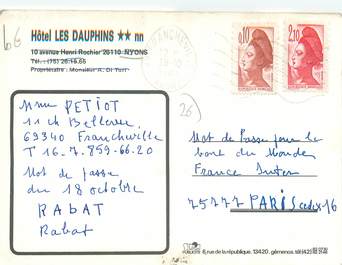 66
Hôtel LES DAUPHINS ★★ nn
10 avenue Henri Rochier 26110 NYONS
Tél. : (75) 26.18.65
Propriétaire : Monsieur A. Di Turi
Mme PETIOT
11 ch Bellevue,
69340 Francheville
T 16.7.859-66.20
Mot de passe
du 18 octobre
RABAT
Rabat
FRANCHEVILLE
0,10
2,20
26
Mot de Passe pour le
bout du Monde
France Inter
75777 PARIS cedex 16
8, rue de la république, 13420, gémenos. tél (42)